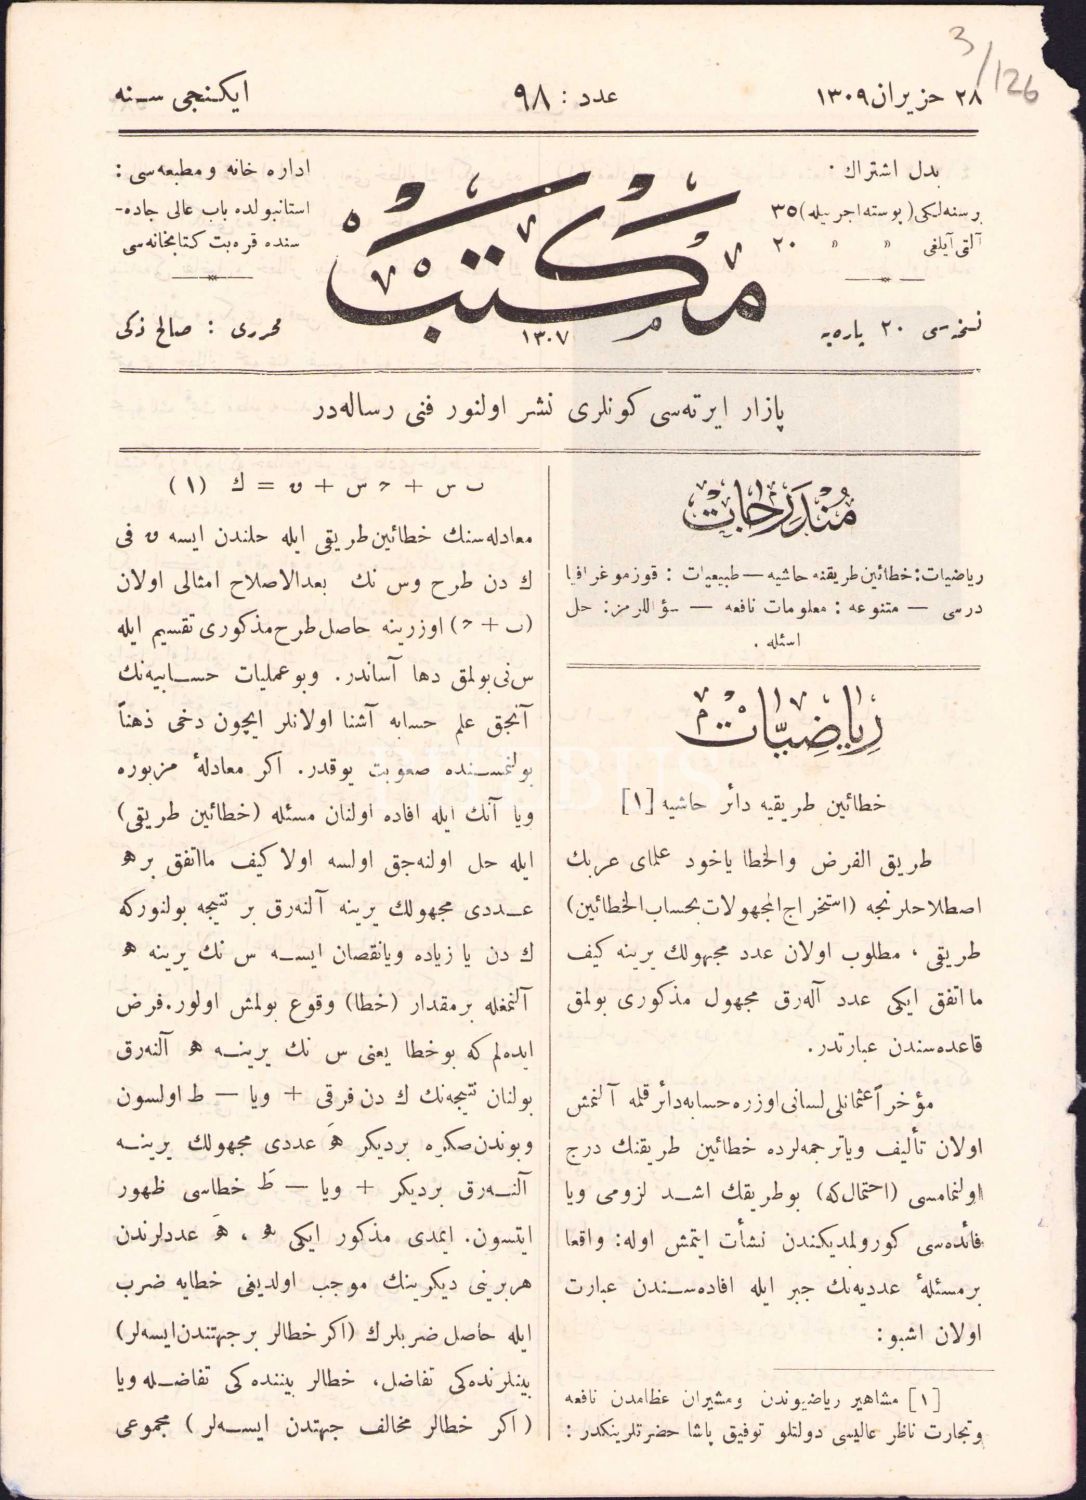 3/126
٢٨ حزيران ١٣٠٩
عدد : ٩٨
ايكنجى سنه
بدل اشتراك ٠
برسنه‌لكى (پوسته اجريله) ٣٥
آلتى آيلغى » » ٢٠
نسخه‌سى ٢٠ پاره‌يه
مكتب
١٣٠٧
اداره خانه ومطبعه‌سى :
استانبولده باب عالى جاده-
سنده قره‌بت كتابخانه‌سى
محررى : صالح ذكى
پازار ايرته‌سى كونلرى نشر اولنور فنى رساله‌در
مندرجات
رياضيات: خطائين طريقنه حاشيه — طبيعيات : قوزموغرافيا
درسى — متنوعه : معلومات نافعه — سؤاللرمز: حل
اسئله .
رياضيات
خطائين طريقيه دائر حاشيه [١]
طريق الفرض والخطا ياخود علماى عربك
اصطلاحلرنجه (استخراج المجهولات بحساب الخطائين)
طريقى ، مطلوب اولان عدد مجهولك يرينه كيف
مااتفق ايكى عدد آله‌رق مجهول مذكورى بولمق
قاعده‌سندن عبارتدر.
مؤخراً عثمانلى لسانى اوزره حسابه دائر قلمه آلنمش
اولان تأليف وياترجمه‌لرده خطائين طريقنك درج
اولنمامسى (احتمال كه) بوطريقك اشد لزومى ويا
فائده‌سى كورولمديكندن نشأت ايتمش اوله: واقعا
برمسئلۀ عدديه‌نك جبر ايله افاده‌سندن عبارت
اولان اشبو :
[١] مشاهير رياضيوندن ومشيران عظامدن نافعه
وتجارت ناظر عاليسى دولتلو توفيق پاشا حضرتلرينكدر :
ب س + ح س + ں = ك (١)
معادله‌سنك خطائين طريقى ايله حلندن ايسه ں فى
ك دن طرح وس نك بعدالاصلاح امثالى اولان
(ب + ح) اوزرينه حاصل طرح مذكورى تقسيم ايله
س نى بولمق دها آساندر. وبوعمليات حسابيه‌نك
آنجق علم حسابه آشنا اولانلر ايچون دخى ذهناً
بولنمسنده صعوبت يوقدر. اكر معادلۀ مزبوره
ويا آنك ايله افاده اولنان مسئله (خطائين طريقى)
ايله حل اولنه‌جق اولسه اولا كيف مااتفق بر ھ
عددى مجهولك يرينه آلنه‌رق بر نتيجه بولنوركه
ك دن يا زياده ويانقصان ايسه س نك يرينه ھ
آلنمغله برمقدار (خطا) وقوع بولمش اولور. فرض
ايده‌لم كه بوخطا يعنى س نك يرينه ھ آلنه‌رق
بولنان نتيجه‌نك ك دن فرقى + ويا — ط اولسون
وبوندن صكره برديكر ھَ عددى مجهولك يرينه
آلنه‌رق برديكر + ويا — طَ خطاسى ظهور
ايتسون. ايمدى مذكور ايكى ھ ، ھَ عددلرندن
هربرينى ديكرينك موجب اولديغى خطايه ضرب
ايله حاصل ضربلرك (اكر خطالر برجهتدن ايسه‌لر)
بينلرنده‌كى تفاضل، خطالر بيننده كى تفاضله ويا
(اكر خطالر مخالف جهتدن ايسه‌لر) مجموعى